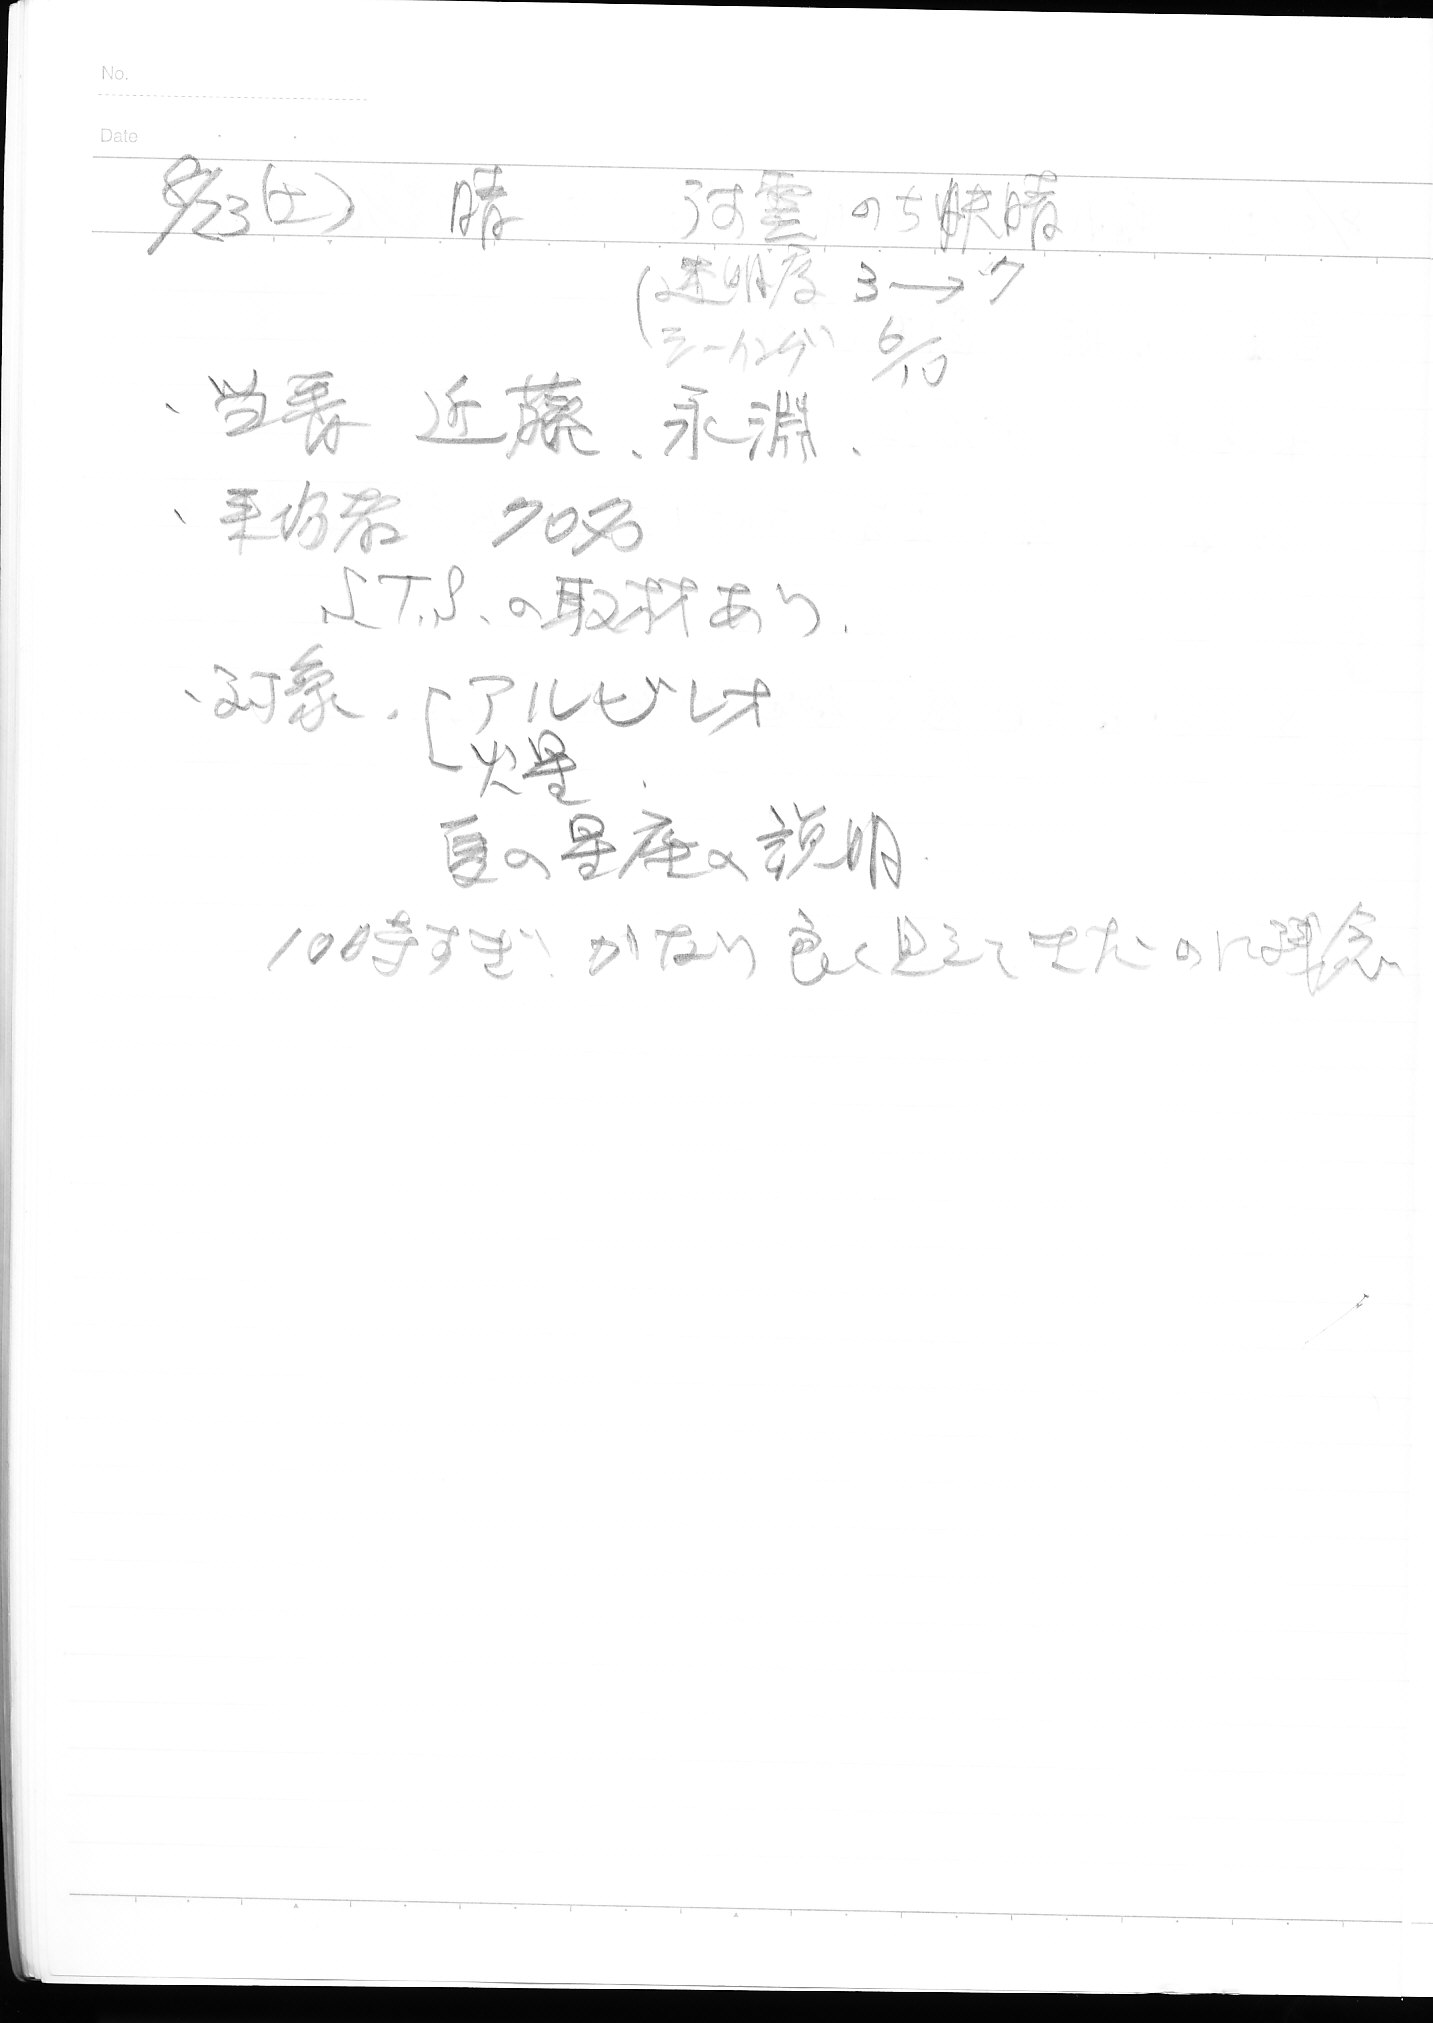 No.
Date
8/23(土) 晴 うす雲のち快晴
(透明度 3→7
シーイング 6/10
・当番 近藤、永淵.
・来場者 70名
S.T.S.の取材あり.
・対象. [アルビレオ
火星.
夏の星座の説明.
10時すぎ かなり良く見えてきたのに残念